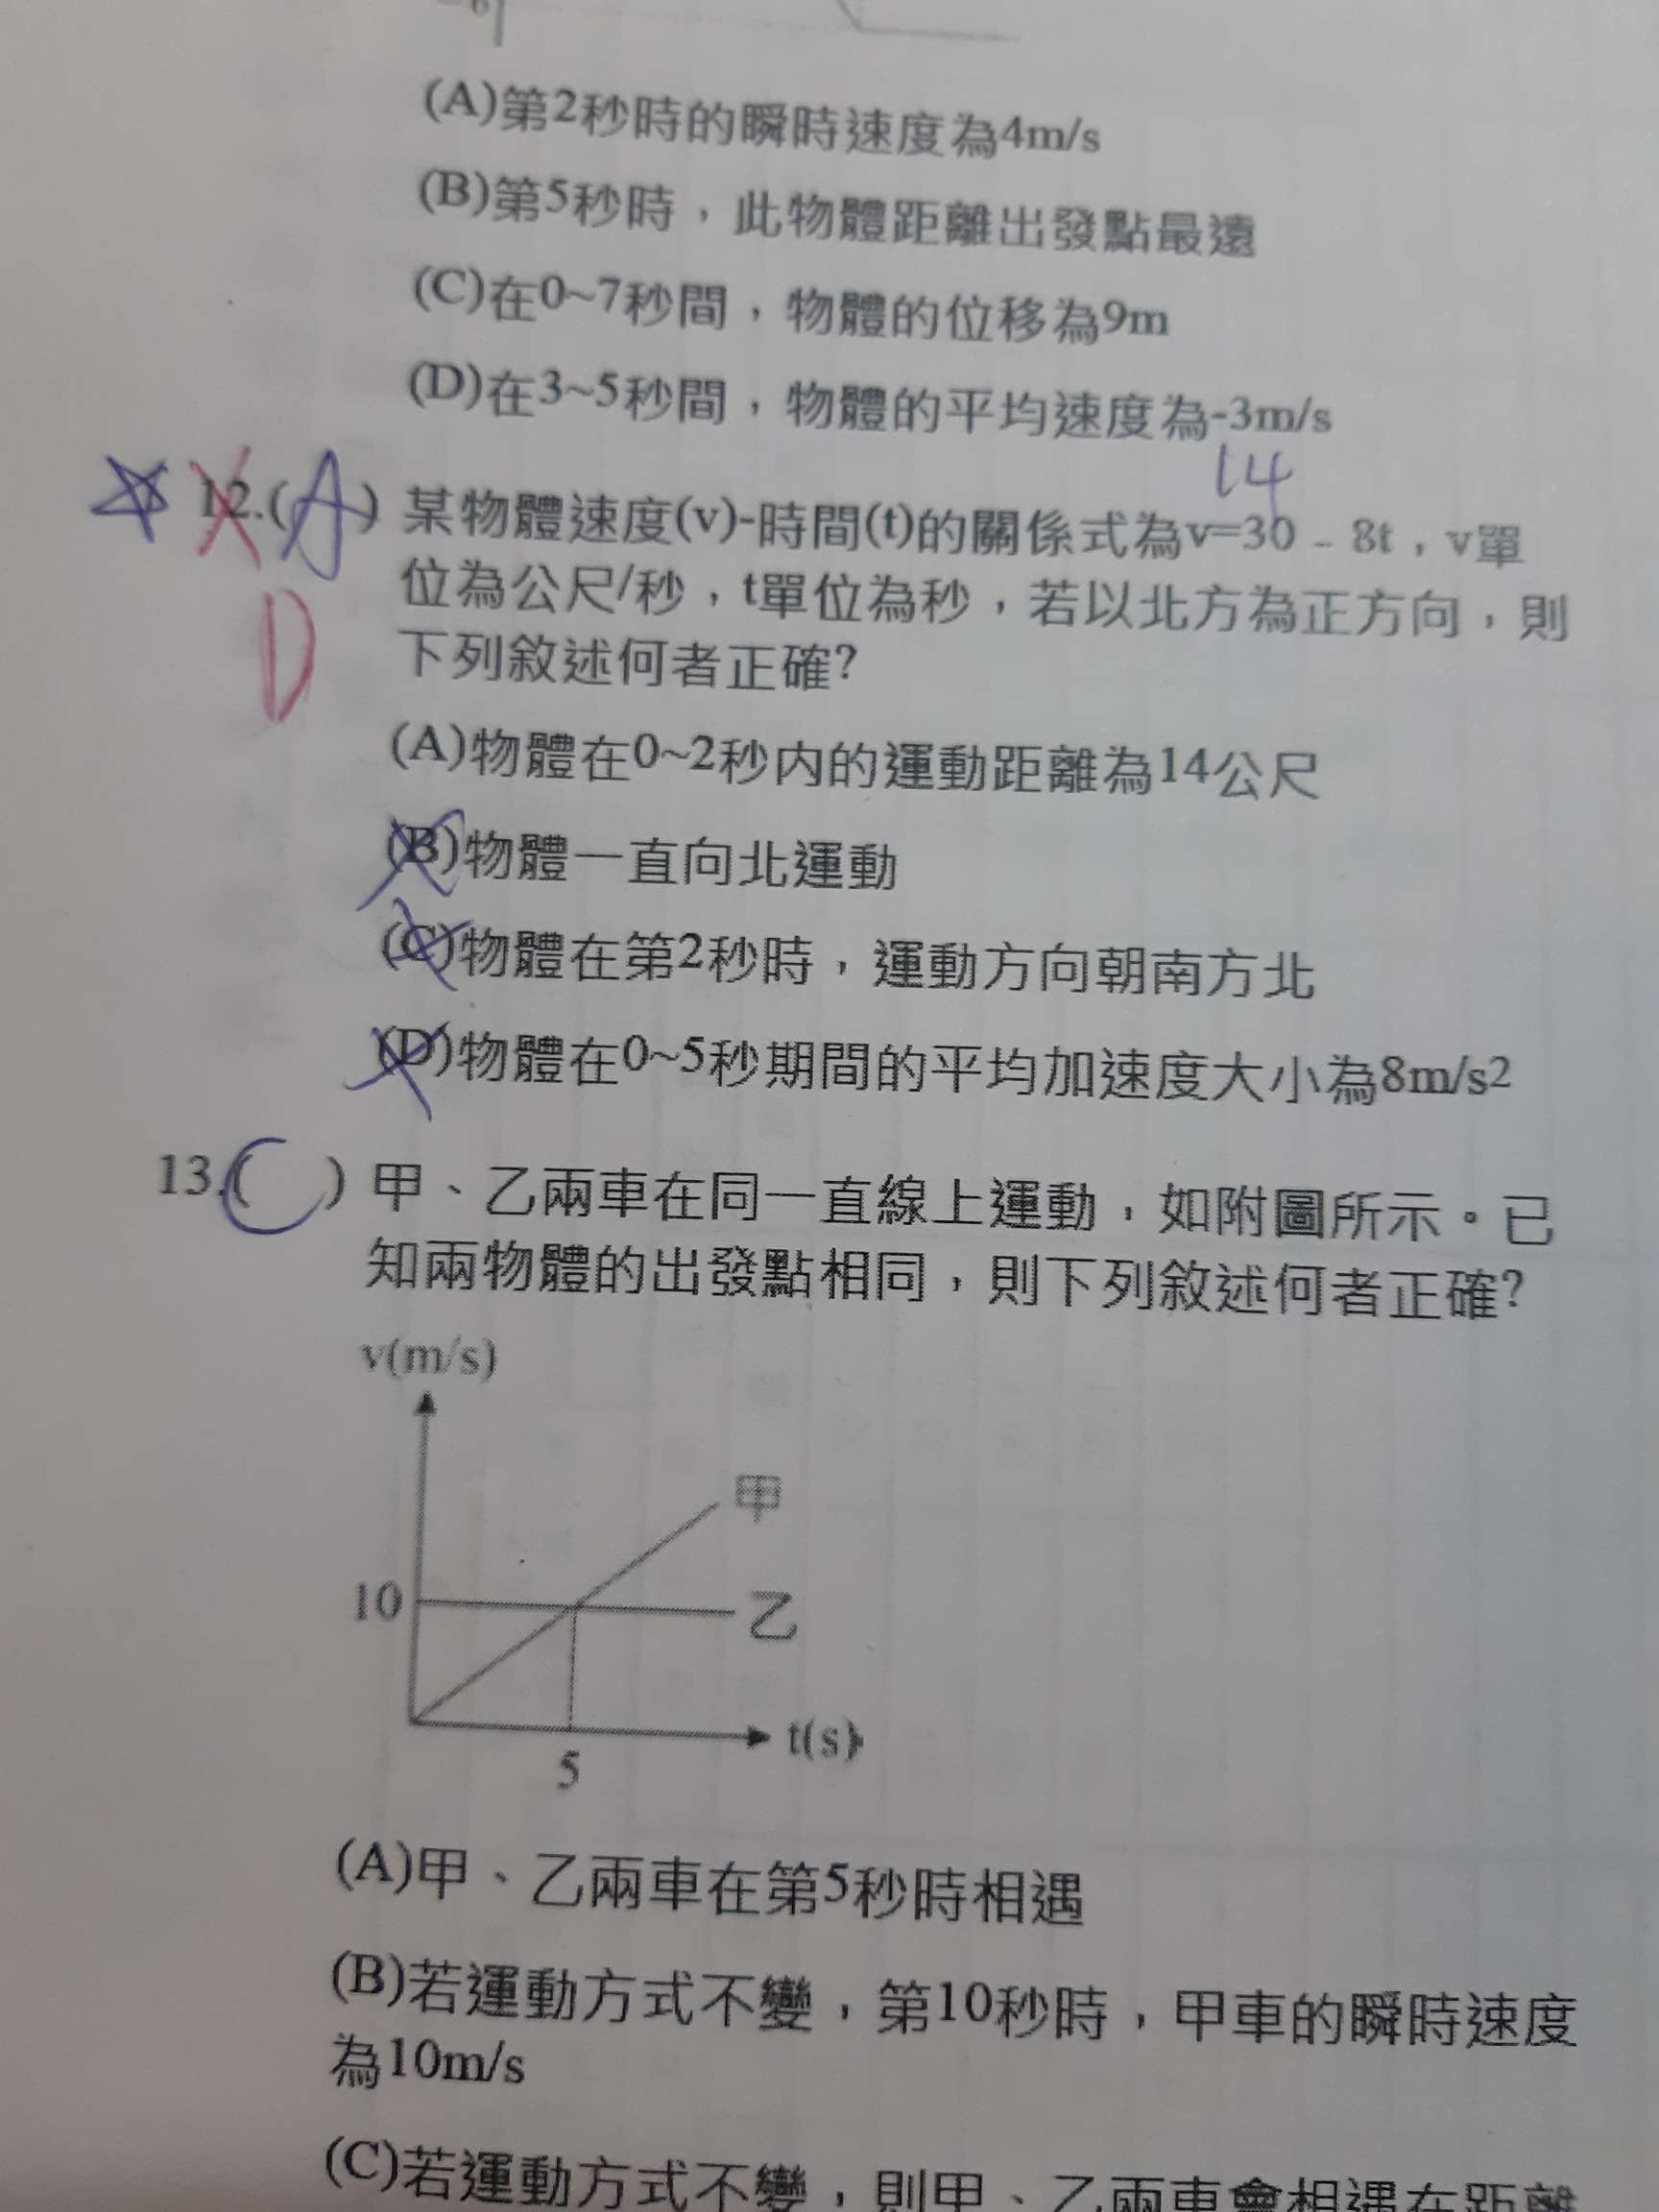 (A)第2秒時的瞬時速度為4m/s
(B)第5秒時，此物體距離出發點最遠
(C)在0~7秒間，物體的位移為9m
(D)在3~5秒間，物體的平均速度為-3m/s
14
12.(A) 某物體速度(v)-時間(t)的關係式為v=30－8t，v單
位為公尺/秒，t單位為秒，若以北方為正方向，則
D
下列敘述何者正確?
(A)物體在0~2秒內的運動距離為14公尺
(B)物體一直向北運動
(C)物體在第2秒時，運動方向朝南方北
(D)物體在0~5秒期間的平均加速度大小為8m/s2
13.(C) 甲、乙兩車在同一直線上運動，如附圖所示。已
知兩物體的出發點相同，則下列敘述何者正確?
v(m/s)
甲
10
乙
t(s)
5
(A)甲、乙兩車在第5秒時相遇
(B)若運動方式不變，第10秒時，甲車的瞬時速度
為10m/s
(C)若運動方式不變，則甲、乙兩車會相遇在距離